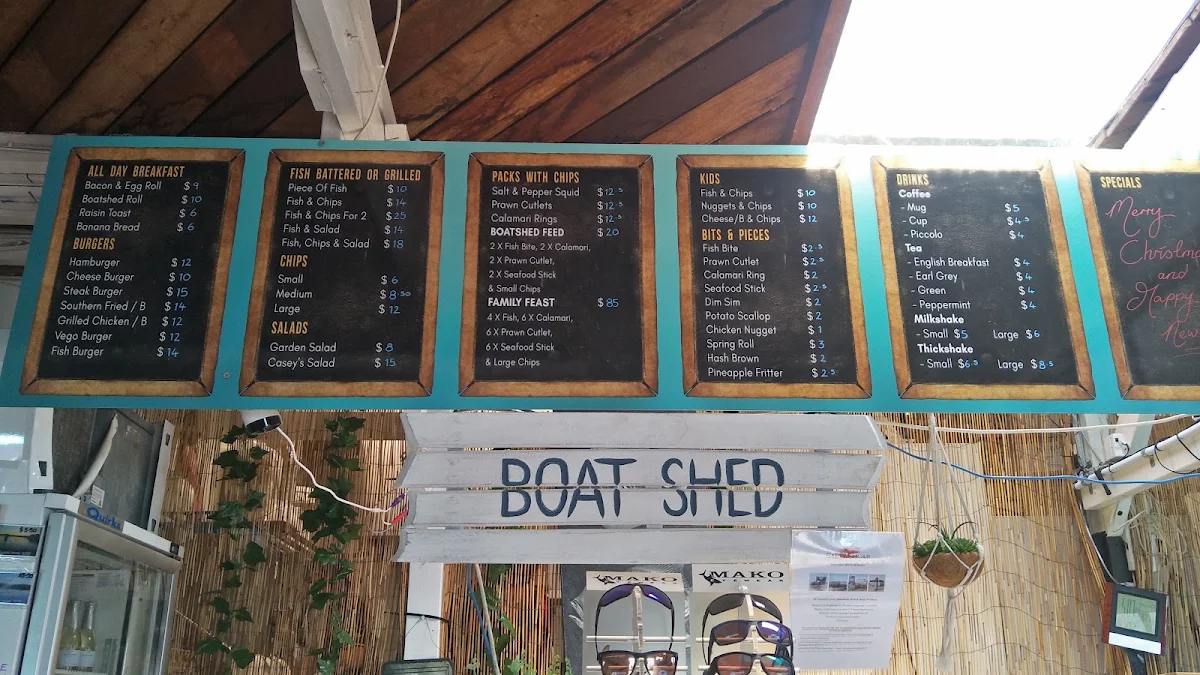 ALL DAY BREAKFAST
Bacon & Egg Roll $9
Boatshed Roll $10
Raisin Toast $6
Banana Bread $6
BURGERS
Hamburger $12
Cheese Burger $10
Steak Burger $15
Southern Fried / B $14
Grilled Chicken / B $12
Vego Burger $12
Fish Burger $14
FISH BATTERED OR GRILLED
Piece Of Fish $10
Fish & Chips $14
Fish & Chips For 2 $25
Fish & Salad $14
Fish, Chips & Salad $18
CHIPS
Small $6
Medium $8.50
Large $12
SALADS
Garden Salad $8
Casey's Salad $15
PACKS WITH CHIPS
Salt & Pepper Squid $12.5
Prawn Cutlets $12.5
Calamari Rings $12.5
BOATSHED FEED $20
2 X Fish Bite, 2 X Calamari,
2 X Prawn Cutlet,
2 X Seafood Stick
& Small Chips
FAMILY FEAST $85
4 X Fish, 6 X Calamari,
6 X Prawn Cutlet,
6 X Seafood Stick
& Large Chips
KIDS
Fish & Chips $10
Nuggets & Chips $10
Cheese/B & Chips $12
BITS & PIECES
Fish Bite $2.5
Prawn Cutlet $2.5
Calamari Ring $2
Seafood Stick $2.5
Dim Sim $2
Potato Scallop $2
Chicken Nugget $1
Spring Roll $3
Hash Brown $2
Pineapple Fritter $2.5
DRINKS
Coffee
- Mug $5
- Cup $4.5
- Piccolo $4
Tea
- English Breakfast $4
- Earl Grey $4
- Green $4
- Peppermint $4
Milkshake
- Small $5 Large $6
Thickshake
- Small $6.5 Large $8.5
SPECIALS
Merry
Christma
and
Happy
New
BOAT SHED
Quirks
MAKO
MAKO